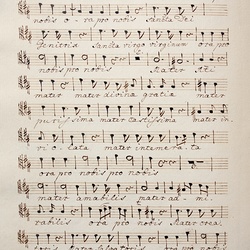 nobis ora pro nobis Sancta Dei
Genitrix Sancta virgo virginum ora pro
nobis pro nobis mater
mater mater divina gratia mater
purissima mater castissima mater in
violata mater intemerata
ora pro nobis pro nobis
mater amabilis mater admi
rabilis ora pro nobis mater crea